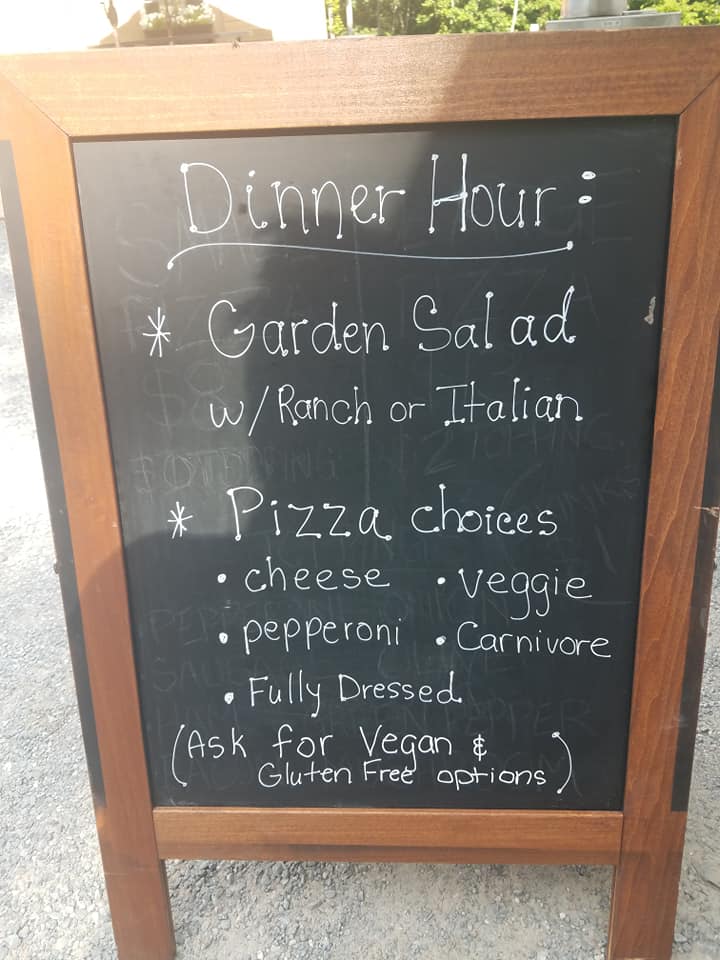 Dinner Hour:
* Garden Salad
w/Ranch or Italian
* Pizza choices
• cheese • veggie
• pepperoni • Carnivore
• Fully Dressed
(Ask for Vegan &
Gluten Free options)